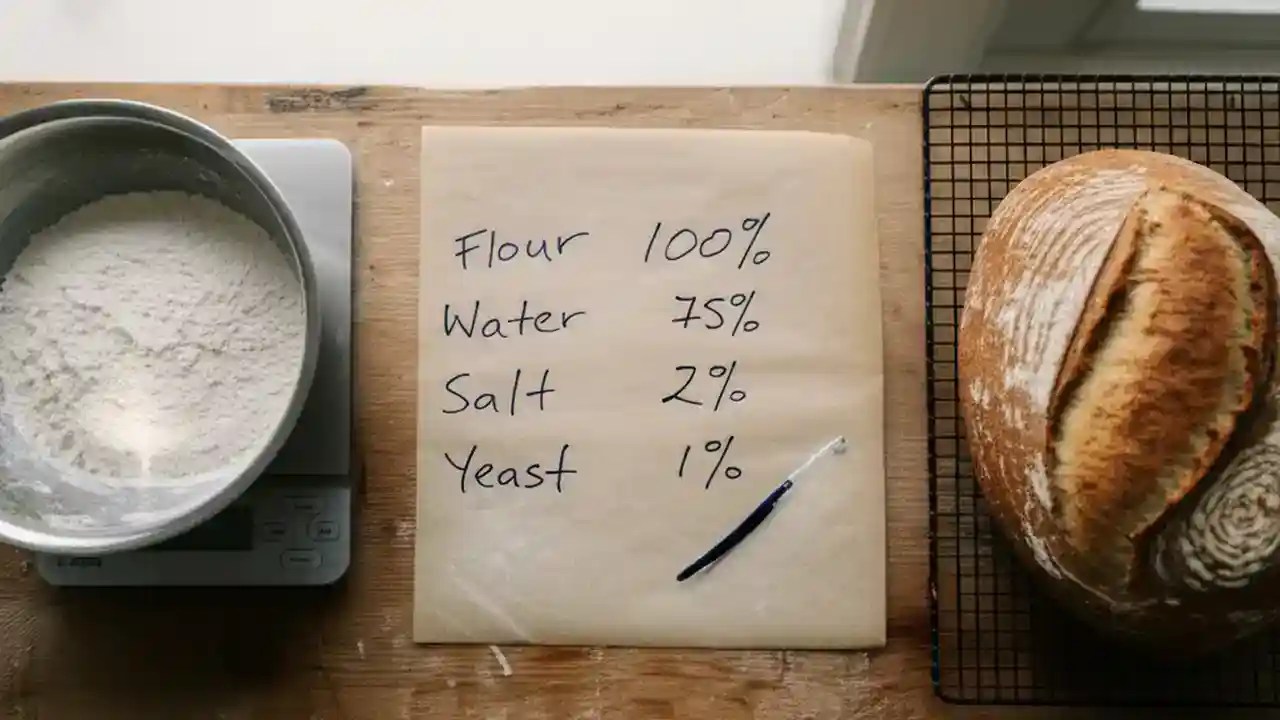 Flour 100%
Water 75%
Salt 2%
Yeast 1%